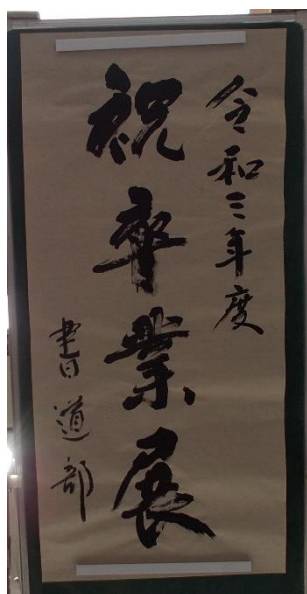 令和三年度
祝卒業展
書道部